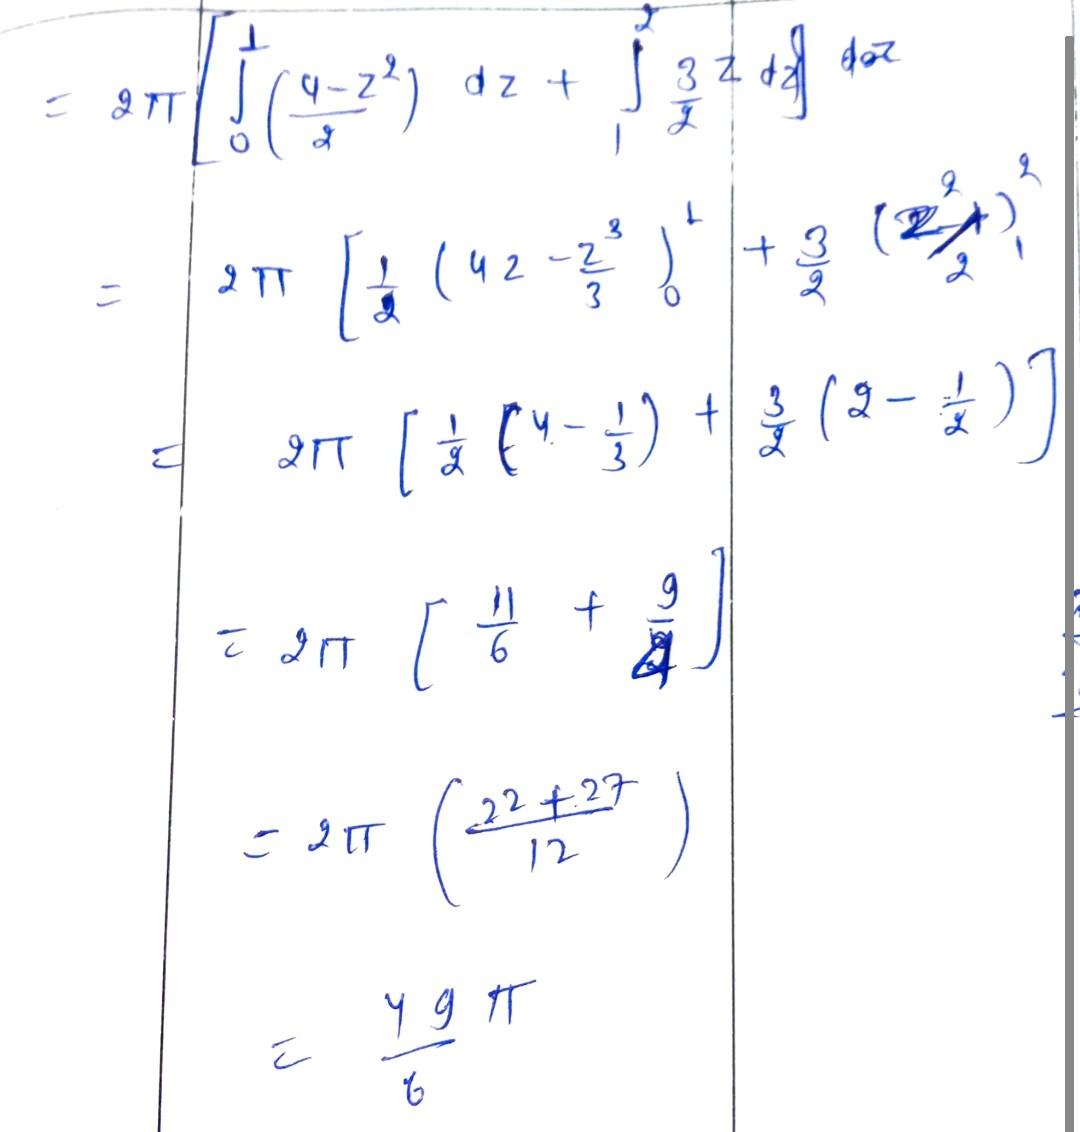 = 2π [ ∫₀¹ (4-z²)/2 dz + ∫₁² 3/2 z dz ]
= 2π [ 1/2 (4z - z³/3)₀¹ + 3/2 (z²/2)₁²
= 2π [ 1/2 (4 - 1/3) + 3/2 (2 - 1/2) ]
= 2π [ 11/6 + 9/4 ]
= 2π ( (22+27)/12 )
= 49π/6